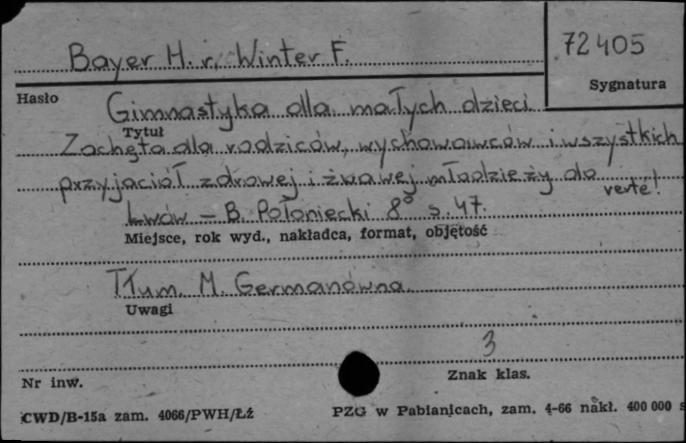 Bayer H. r. Winter F.
72405
Sygnatura
Hasło
Gimnastyka dla małych dzieci
Tytuł
Zachęta dla rodziców, wychowawców i wszystkich
przyjaciół zdrowej i żwawej młodzieży do
verte!
Lwów - B. Połoniecki 8° s. 47.
Miejsce, rok wyd., nakładca, format, objętość
Tłum. M. Germanówna.
Uwagi
3
Nr inw.
Znak klas.
CWD/B-15a zam. 4066/PWH/Łź
PZG w Pabianicach, zam. 4-66 nakł. 400 000 s